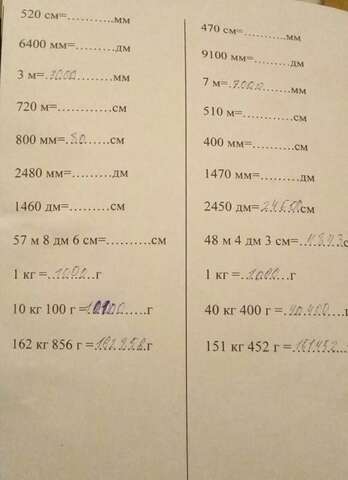 520 см=............мм
6400 мм=.........дм
3 м=.3000......мм
720 м=............см
800 мм=.80......см
2480 мм=.........дм
1460 дм=.........см
57 м 8 дм 6 см=............см
1 кг =.1000..г
10 кг 100 г =10100.....г
162 кг 856 г =162856.г
470 см=..........мм
9100 мм=..........дм
7 м=.7000......мм
510 м=............см
400 мм=..........см
1470 мм=.........дм
2450 дм=24500.см
48 м 4 дм 3 см=.4843с
1 кг =.1000...г
40 кг 400 г =.40400....
151 кг 452 г =.151452..